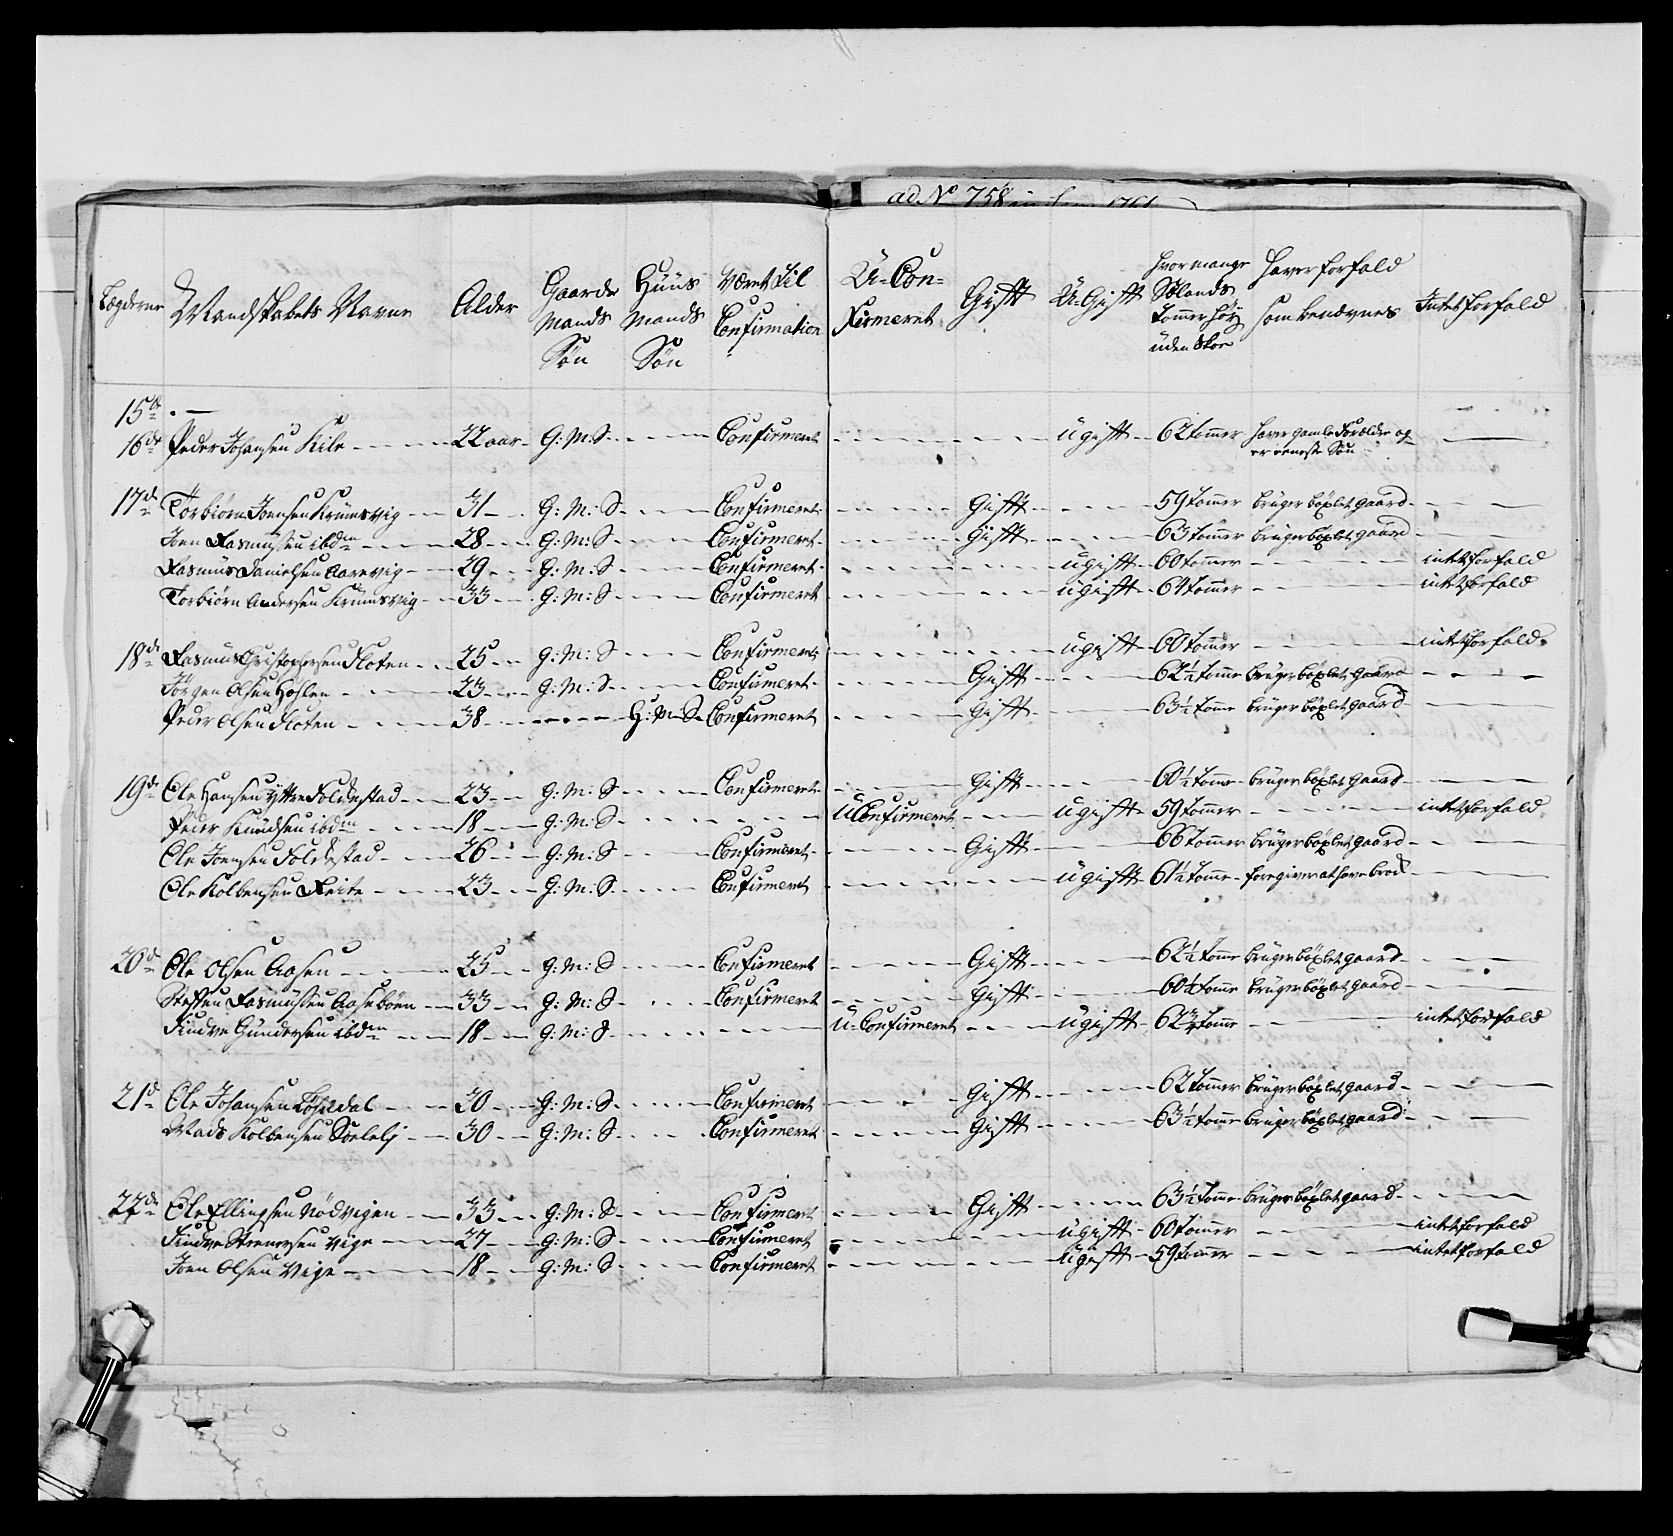 ad N° 758
Lægderne Mandskabets Navne Alder Gaards Mands Søn Huus Mands Søn Været til Confirmation U-Confirmeret Gift U-Gift hvor mange Sælands tommer høy uden Skoe haver forfald som benævnes Intet forfald
15de
16de Peder Johansen Kile 22 aar G:M:S Confirmeret ugift 62 tommer haver gamle Forældre og er eeneste Søn
17de Torbiørn Joensen Krumsvig 31 G:M:S Confirmeret Gift 59 tommer bruger bøxlet gaard
Joen Rasmusen ibdm 28 G:M:S Confirmeret Gift 63 tommer bruger bøxlet gaard
Rasmus Danielsen Aarevig 29 G:M:S Confirmeret ugift 60 tommer intet forfald
Torbiørn Andersen Krumsvig 33 G:M:S Confirmeret ugift 64 tommer intet forfald
18de Rasmus Christophersen Floten 25 G:M:S Confirmeret ugift 60 tommer intet forfald
Jørgen Olsen 23 G:M:S Confirmeret Gift 62½ tomme bruger bøxlet gaard
Peder Olsen Floten 38 H:M:S Confirmeret Gift 63½ tomme bruger bøxlet gaard
19de Ole Hansen Yttre Foldestad 23 G:M:S Confirmeret Gift 60½ tomme bruger bøxlet gaard
Peder Knudsen ibdm 18 G:M:S UConfirmeret ugift 59 tommer intet forfald
Ole Joensen Foldestad 26 G:M:S Confirmeret Gift 66 tommer bruger bøxlet gaard
Ole Kolbensen Reite 23 G:M:S Confirmeret ugift 61½ tomme foregiver at have brok
20de Ole Olsen Aasen 25 G:M:S Confirmeret Gift 62½ tomme bruger bøxlet gaard
Steffen Rasmusen Aasebøen 33 G:M:S Confirmeret Gift 60½ tomme bruger bøxlet gaard
Findve Gundersen ibdm 18 G:M:S U-Confirmeret ugift tomme intet forfald
21de Ole Johansen 30 G:M:S Confirmeret Gift 62 tommer bruger bøxlet gaard
Mads Kolbensen 30 G:M:S Confirmeret Gift 63½ tomme bruger bøxlet gaard
22de Ole Ellingsen Nødvigen 33 G:M:S Confirmeret Gift 63½ tomme bruger bøxlet gaard
Findve Steenersen Vige 27 G:M:S Confirmeret ugift 60 tommer intet forfald
Joen Olsen Vige 18 G:M:S Confirmeret ugift 59 tommer intet forfald